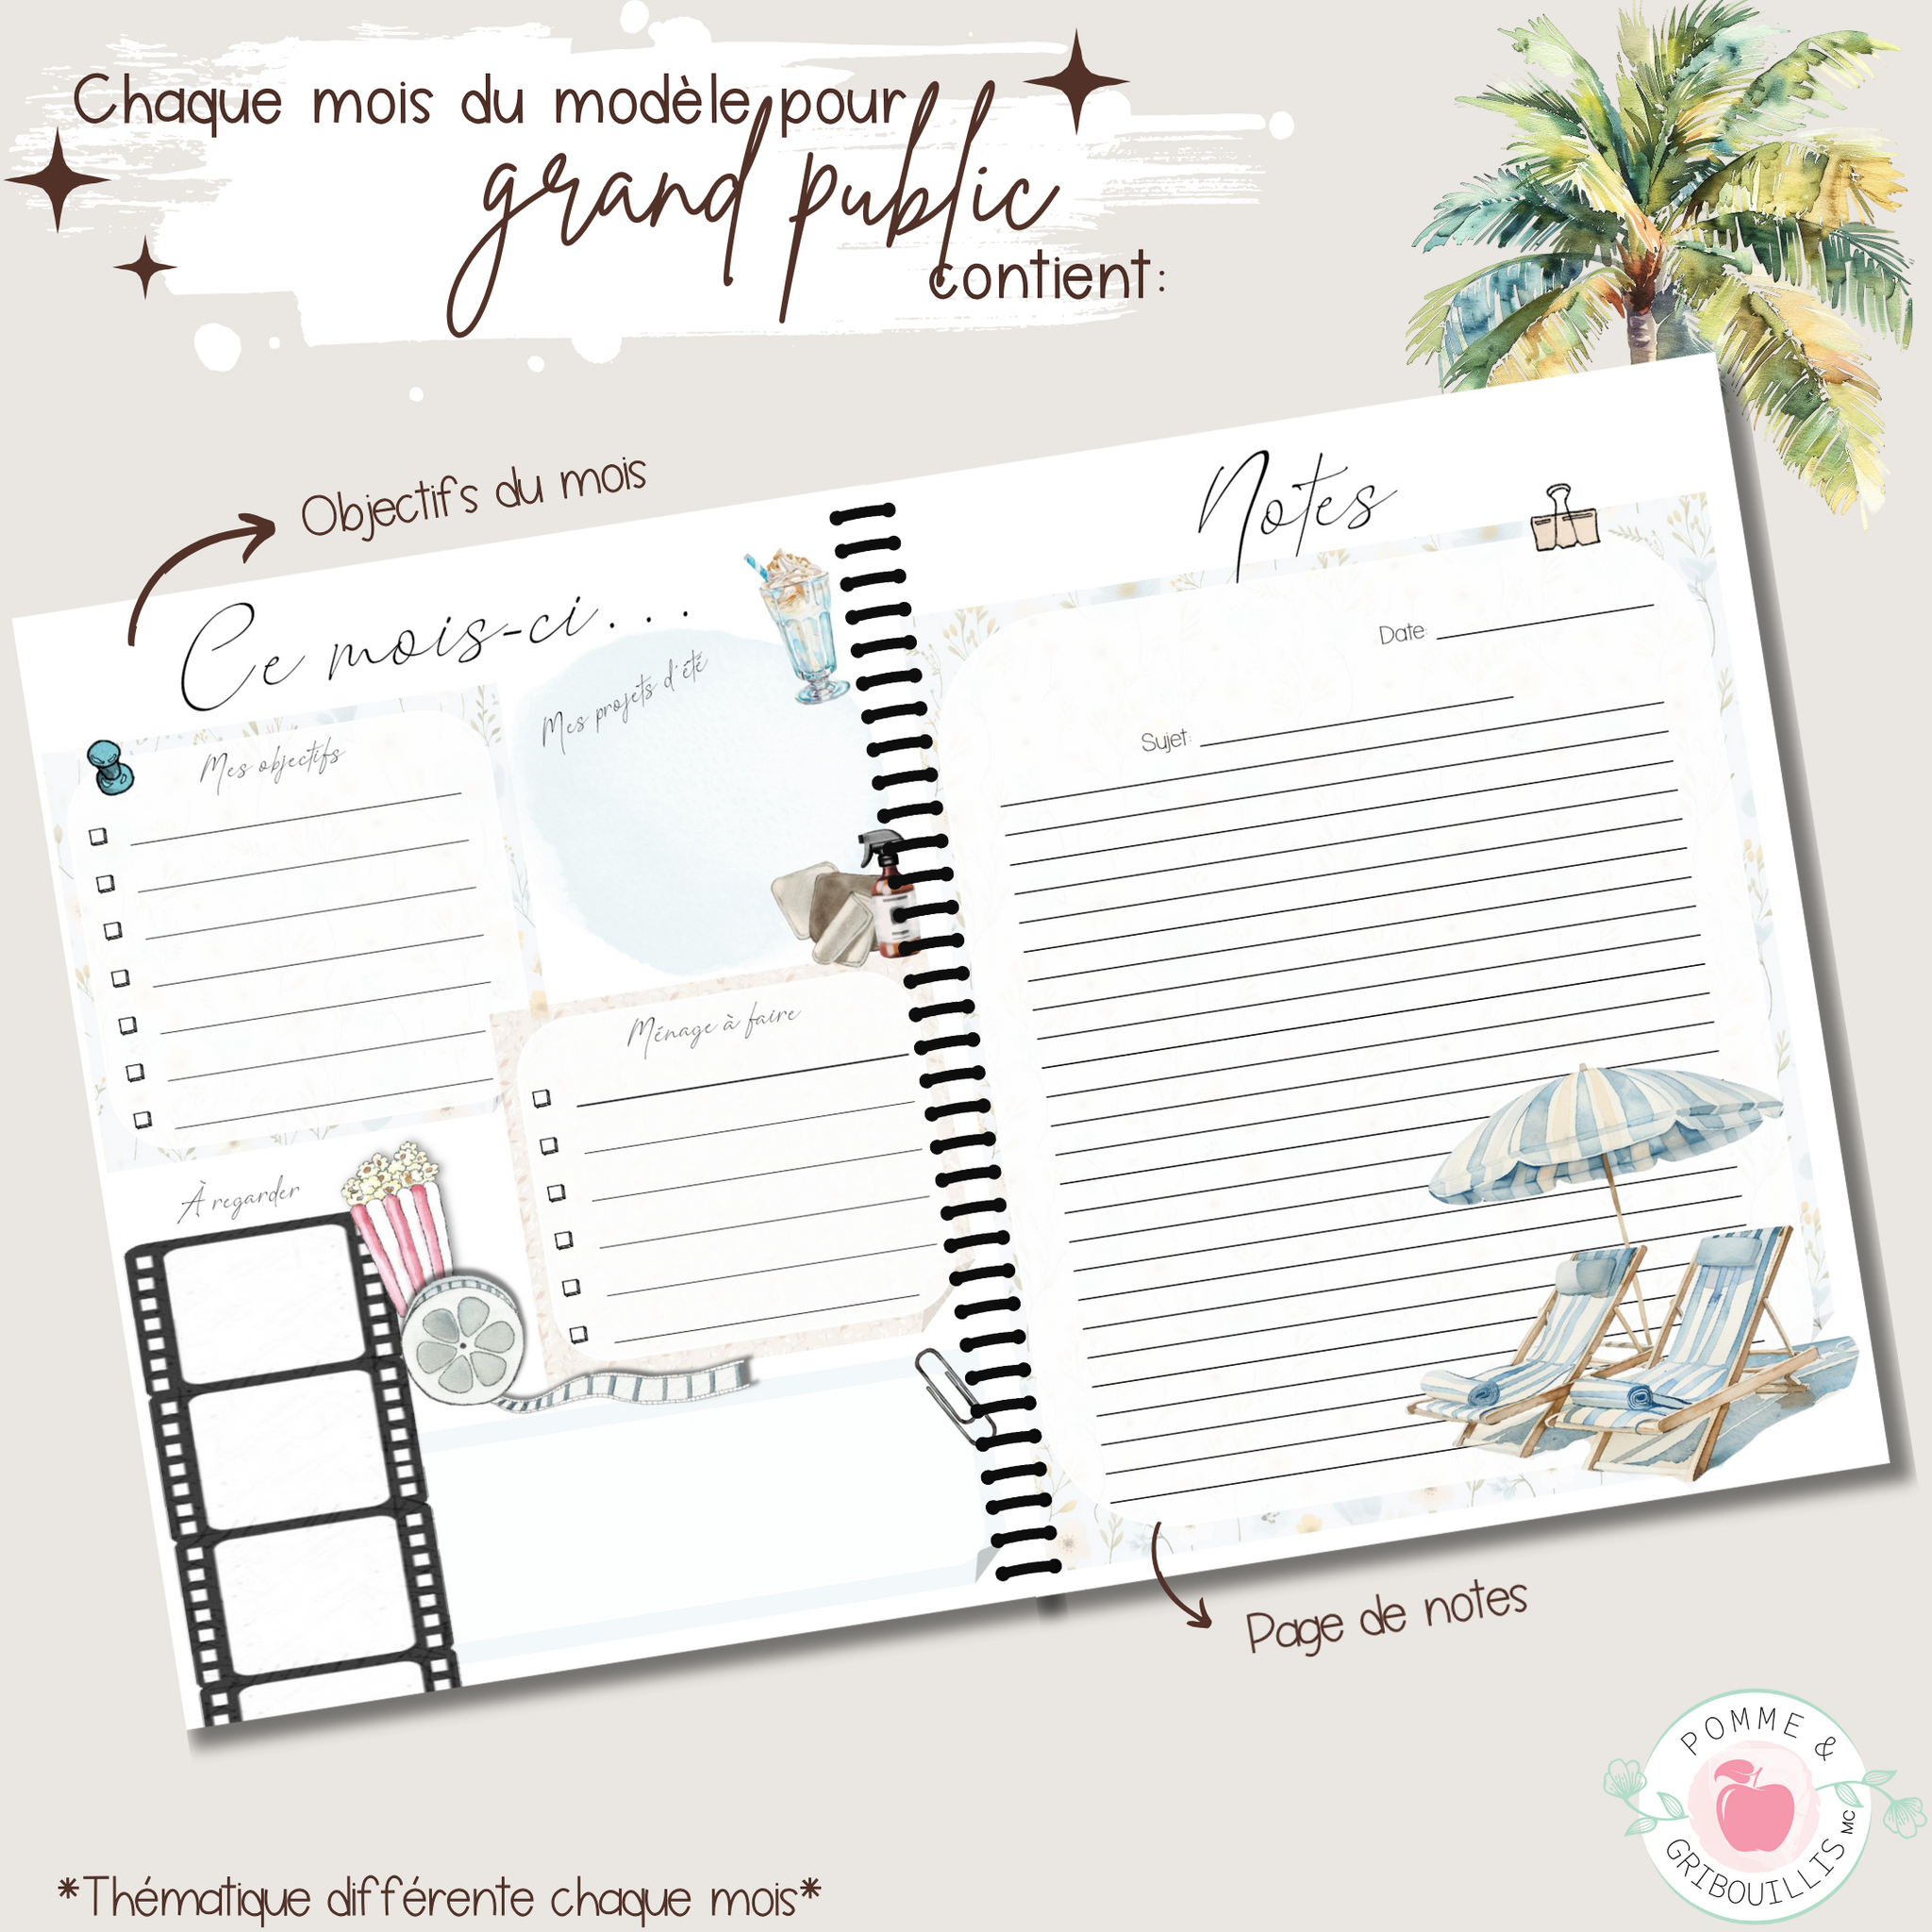 Chaque mois du modèle pour
grand public
contient:
Objectifs du mois
Ce mois-ci...
Mes objectifs
Mes projets d'été
Ménage à faire
À regarder
Notes
Date:
Sujet:
Page de notes
POMME &
GRIBOUILLIS MC
*Thématique différente chaque mois*